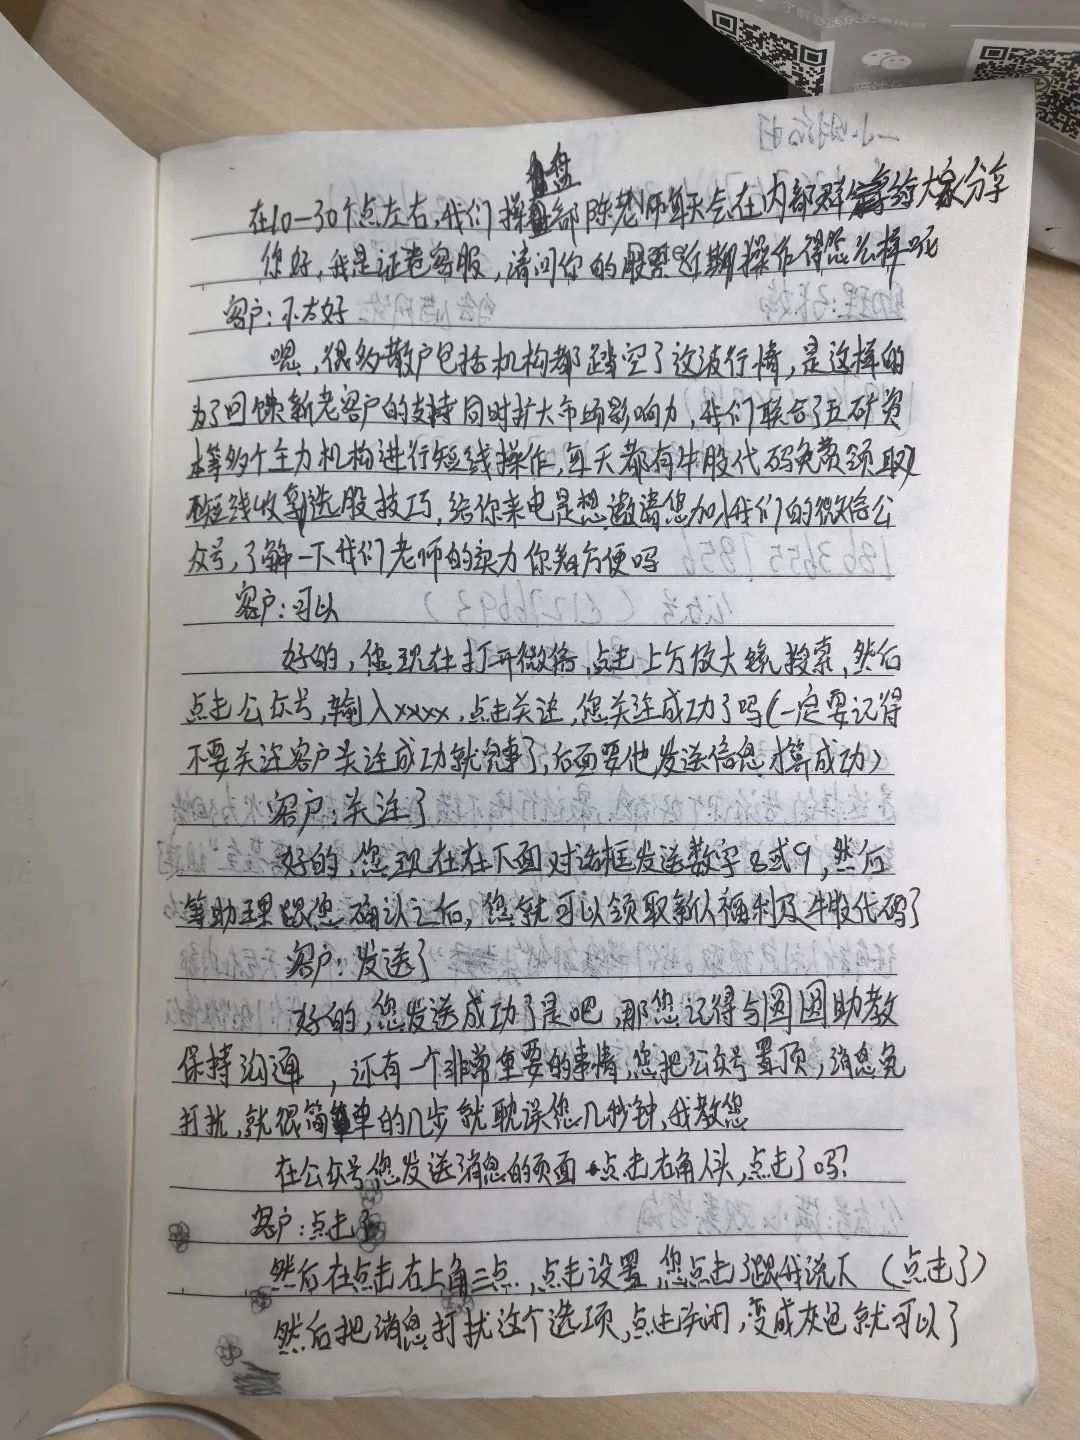 了解多法乐更多信息
盘
在10-30个点左右,我们操盘部陈老师每天会在内部群给大家分享
你好,我是证卷客服,请问你的股票近期操作得怎么样呢
客户:不太好
嗯,很多散户包括机构都踏空了这波行情,是这样的
为了回馈新老客户的支持同时扩大市场影响力,我们联合了五矿资
本等多个主力机构进行短线操作,每天都有牛股代码免费领取
短线收割选股技巧,给你来电是想邀请您加入我们的微信公
众号,了解一下我们老师的实力你看方便吗
客户:可以
好的,您现在打开微信,点击上方放大镜搜索,然后
点击公众号,输入xxxx,点击关注,您关注成功了吗(一定要记得
不要关注客户关注成功就完事了,后面要他发送信息才算成功)
客户:关注了
好的,您现在在下面对话框发送数字8或9,然后
等助理跟您确认之后,您就可以领取新人福利及牛股代码了
客户:发送了
好的,您发送成功了是吧,那您记得与圆圆助教
保持沟通,还有一个非常重要的事情,您把公众号置顶,消息免
打扰,就很简单的几步就耽误您几秒钟,我教您
在公众号您发送消息的页面点击右角人头,点击了吗?
客户:点击了
然后在点击右上角三点,点击设置,您点击了跟我说下(点击了)
然后把消息打扰这个选项,点击关闭,变成灰色就可以了